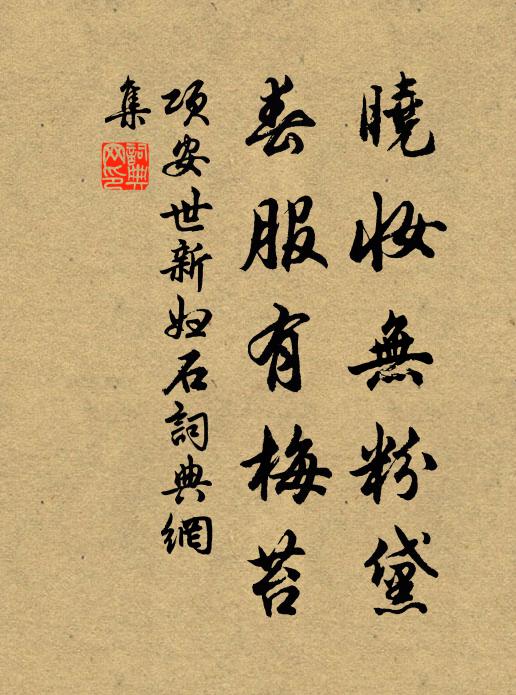 曉妝無粉黛
春服有梅苔
項安世新婦石詞典網
集
詞典
網印